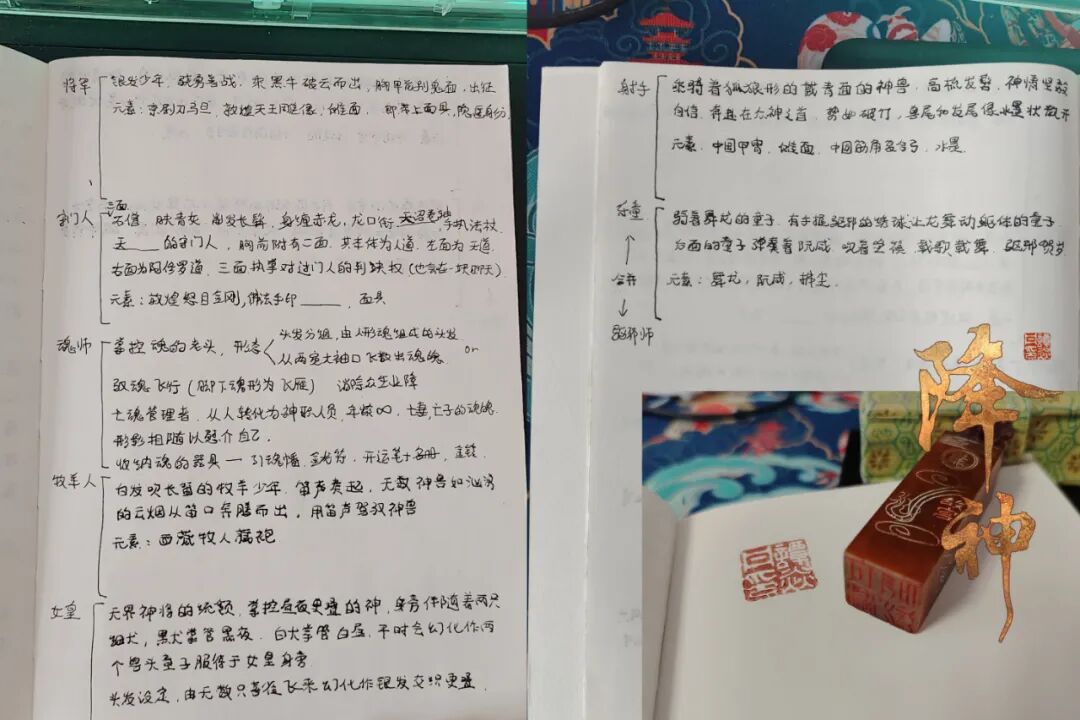 将军
银发少年，骁勇善战，乘黑牛破云而出，胸甲能别鬼面，出征
元素：京剧刀马旦，敦煌天王俑像，傩面，即带上面具，隐匿身份
守门人
石像，肤青灰，长辫，身缠赤龙，龙口衔 手执法杖
天____的守门人，胸前附有二面，其本体为人道，左面为天道，
右面为阿修罗道，三面执掌对过门人的判决权（也会在一块聊天）
元素：敦煌怒目金刚，佛法手印____，面具
魂师
掌控魂的老头，形态
头发分组，由人形魂组成的头发
从两宽大袖口飞散出魂魄 or
驭魂飞行（脚下魂形为飞雁） 消除众生业障
亡魂管理者，从人转化为神职人员，年龄∞，亡妻，亡子的魂魄
形影相随以慰介自己，
收纳魂的器具—引魂幡，金光符，开运笔+名册，金锁
牧羊人
白发吹长笛的牧羊少年，笛声奏起，无数神兽如汹涌
的云烟从笛口奔腾而出，用笛声驾驭神兽
元素：西藏牧人藏袍
女皇
天界神将的统领，掌控昼夜更叠的神，身旁伴随着两只
细犬，黑犬掌管黑夜，白犬掌管白昼，平时会幻化作两
个兽头童子服侍于女皇身旁
头发设定，由无数只 飞来幻化作银发交织更叠，
射手
乘骑着狐狼形的戴青面的神兽，高梳发髻，神情坚毅
自信，奔走在六神之首，势如破竹，兽尾和发尾像水墨状散开
元素，中国甲胄，傩面，中国筋角 弓，水墨
乐童
骑着舞龙的童子，有手握驱邪的绣球让龙舞动躯体的童子
合并
白面的童子弹奏着阮咸，吹着笙 ，载歌载舞，驱邪贺岁
元素：舞龙，阮咸，拂尘
驱邪师
降神